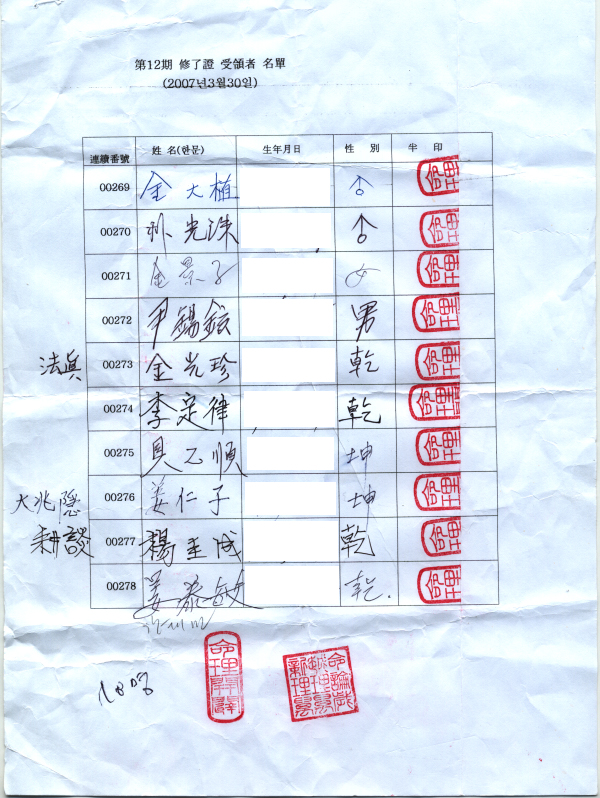 第12期 修了證 受領者 名單
(2007년3월30일)
連續番號 姓 名(한문) 生年月日 性 別 半 印
00269 金 大 植 ♂
00270 朴 光 洙 ♂
00271 金 景 子 女
00272 尹 錫 鉉 男
法眞 00273 金 光 珍 乾
00274 李 定 律 乾
00275 具 乙 順 坤
大兆隱 00276 姜 仁 子 坤
耕談 00277 楊 圭 成 乾
00278 姜 泰 敏 乾.
命理開闢